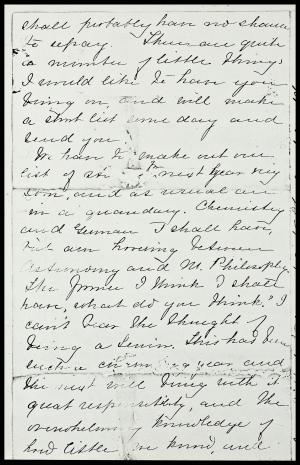 shall probably have no chance
to repay. There are quite
a number of little things
I would like to have you
bring on, and will make
a short list some day and
send you.
We have to make out our
list of for next year very
soon, and as usual am
in a quandary. Chemistry
and German I shall have,
but am hovering between
Astronomy and M. Philosophy.
The former I think I shall
have, what do you think? I
can't bear the thought of
being a Senior. This has been
such a charming year and
the next will bring with it
great responsibility, and the
overwhelming knowledge of
how little we know, and